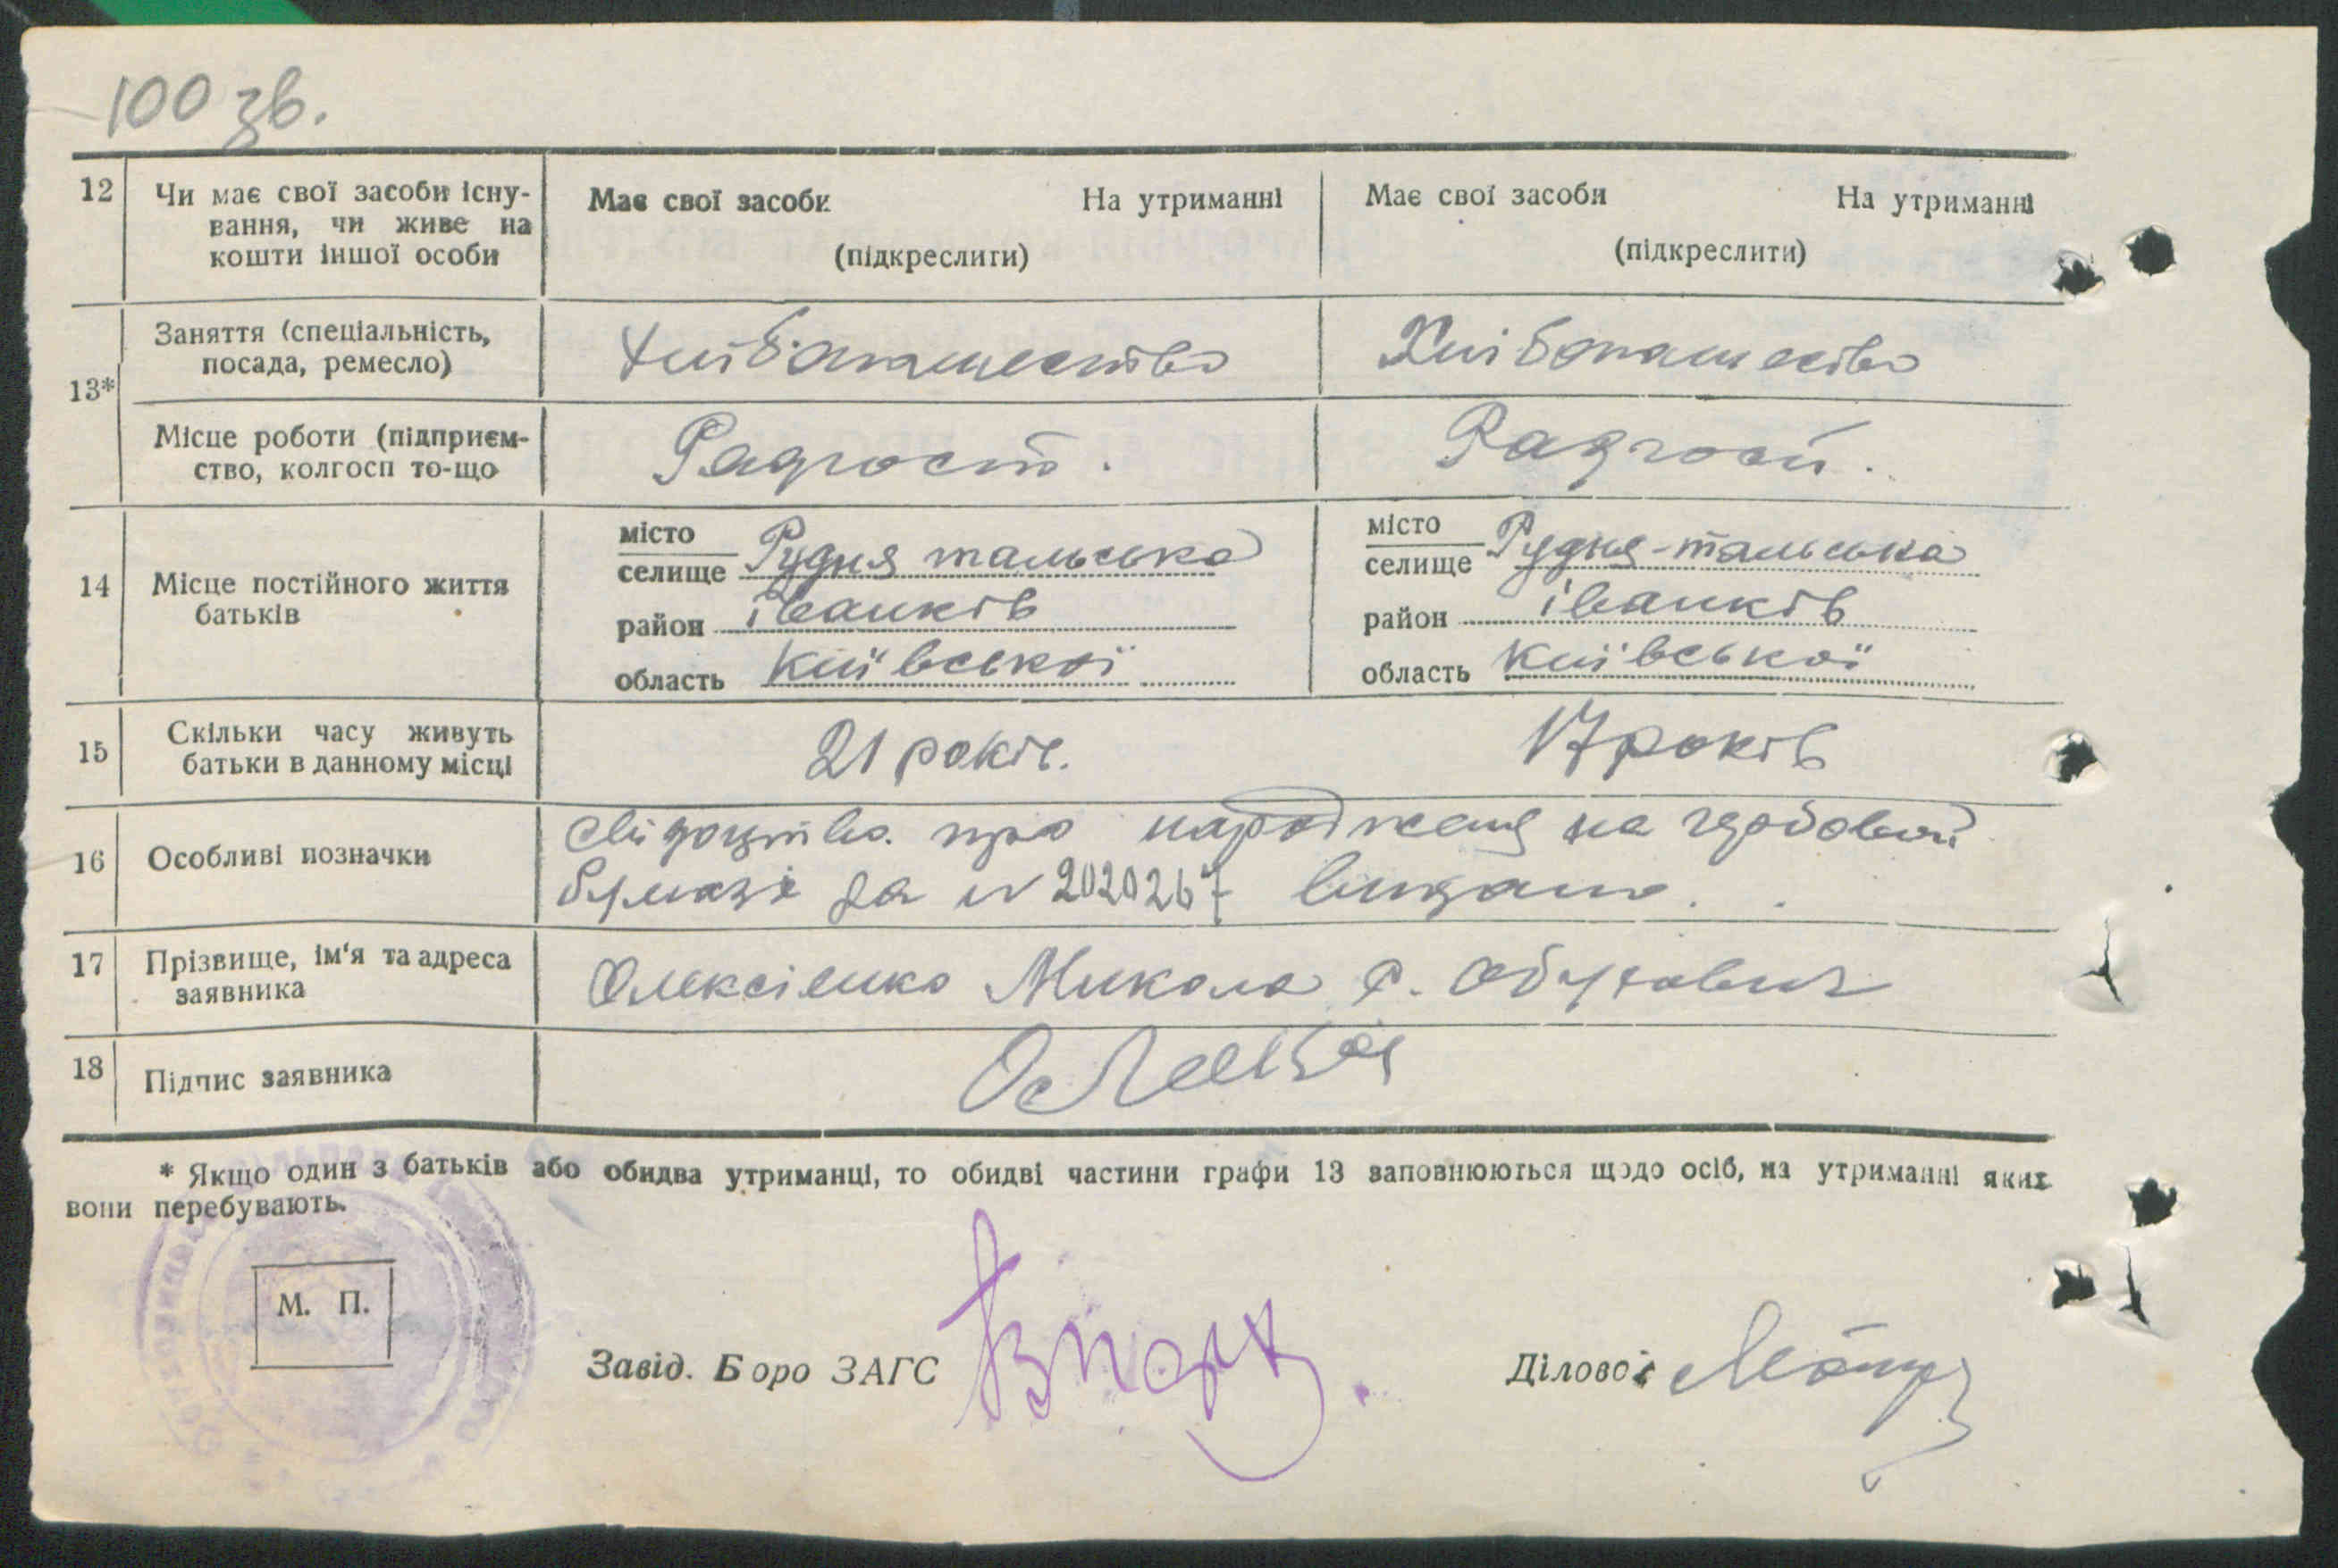 100 зв.
12 Чи має свої засоби існу-
вання, чи живе на
кошти іншої особи
Має свої засоби На утриманні
(підкреслити)
Має свої засоби На утриманні
(підкреслити)
13* Заняття (спеціальність,
посада, ремесло)
Хлібопашество Хлібопашество
Місце роботи (підприєм-
ство, колгосп то-що
Радгосп. Радгосп.
14 Місце постійного життя
батьків
місто
селище Рудня тальська
район іванків
область Київської
місто
селище Рудня-тальська
район іванків
область Київської
15 Скільки часу живуть
батьки в данному місці
21 років. 17 років
16 Особливі позначки
Свідоцтво про народження на гербовій
бумазі за № 2020267 видано.
17 Прізвище, ім'я та адреса
заявника
Олексієнко Микола с.
18 Підпис заявника
* Якщо один з батьків або обидва утриманці, то обидві частини графи 13 заповнюються щодо осіб, на утриманні яких
вони перебувають.
М. П.
Завід. Бюро ЗАГС
Діловод